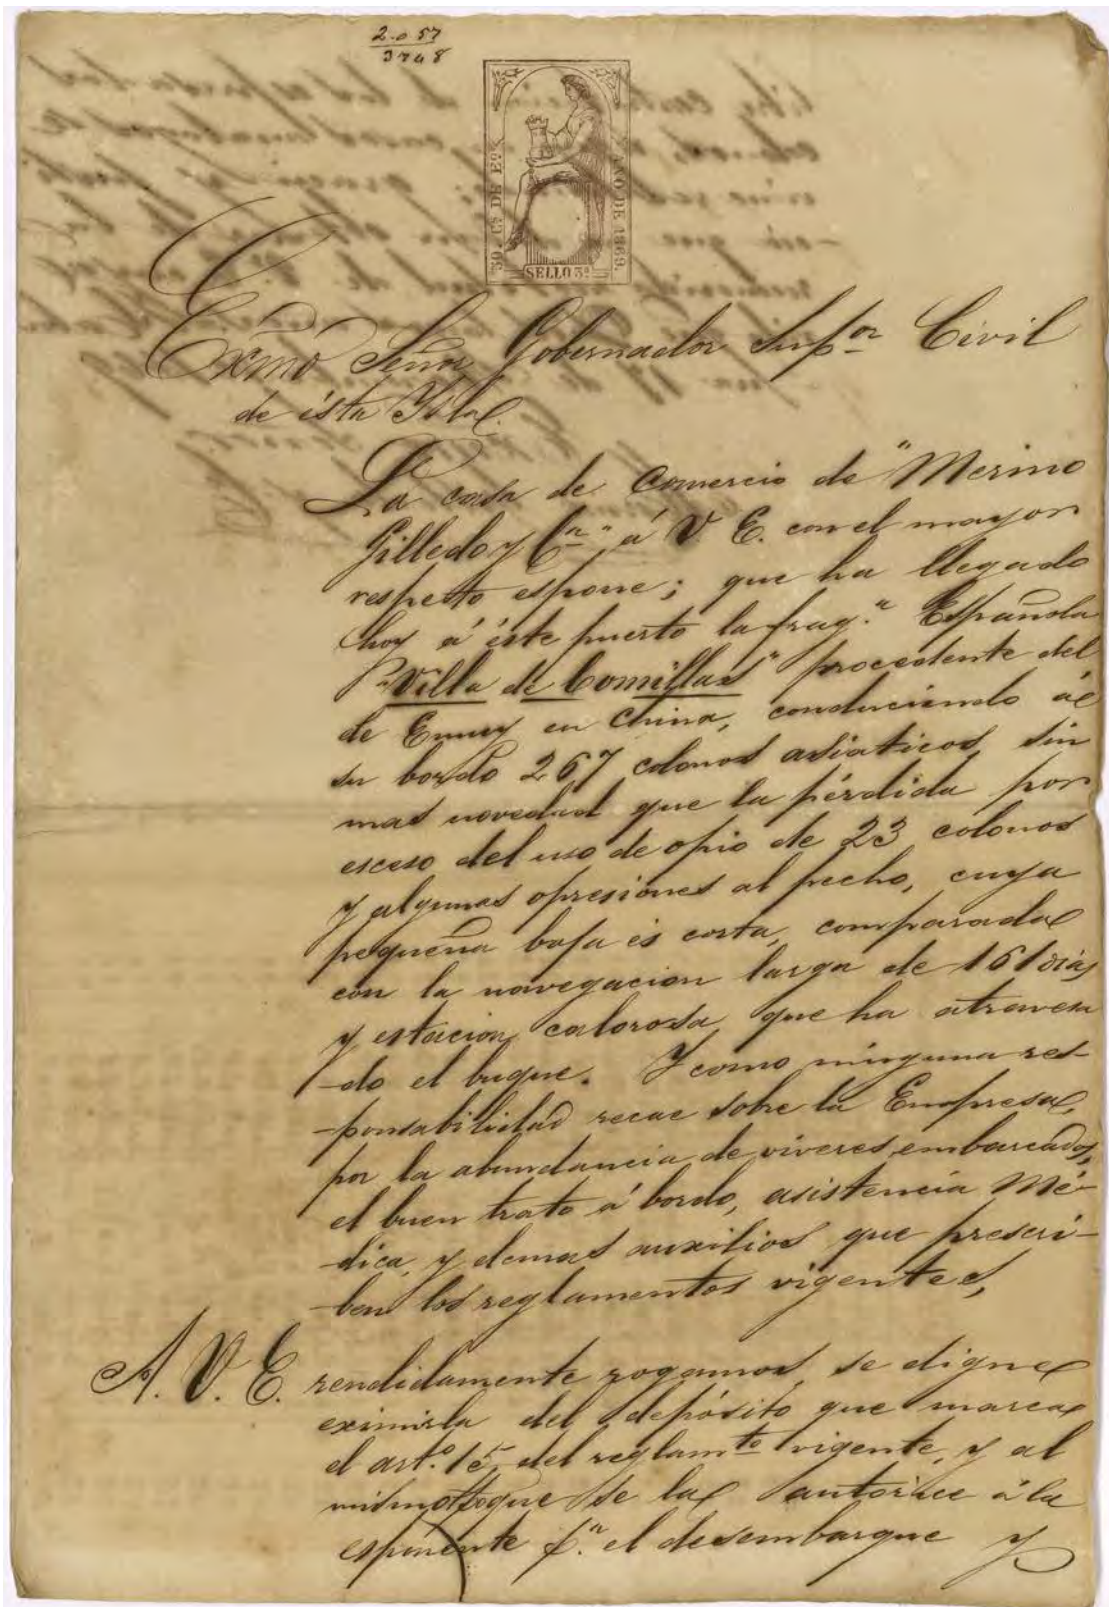 2.057
3748
50. Cs DE Eo.
AÑO DE 1869.
SELLO 3º
Exmo Señor Gobernador Supor Civil
de ésta Ysla.
La casa de Comercio de "Merino
Gilledo y Ca" á V. E. con el mayor
respecto espone; que ha llegado
hoy á éste puerto la frag.a Española
"Villa de Comillas" procedente del
de Emuy en China, conduciendo á
su bordo 267 colonos asiaticos, sin
mas novedad que la pérdida por
esceso del uso de opio de 23 colonos
y algunas opresiones al pecho, cuya
pequeña baja és corta, comparada
con la navegacion larga de 161 dias,
y estacion calorosa que ha atravesa
-do el buque. Y como ninguna res-
-ponsabilidad recae sobre la Empresa,
por la abundancia de viveres embarcados,
el buen trato á bordo, asistencia Mé-
-dica, y demas auxilios que prescri-
-ben los reglamentos vigentes,
A. V. E. rendidamente rogamos, se digne
eximirla del depósito que marca
el art.o 15, del reglamto vigente, y al
mismo que se la autorice á la
esponente p.a el desembarque y